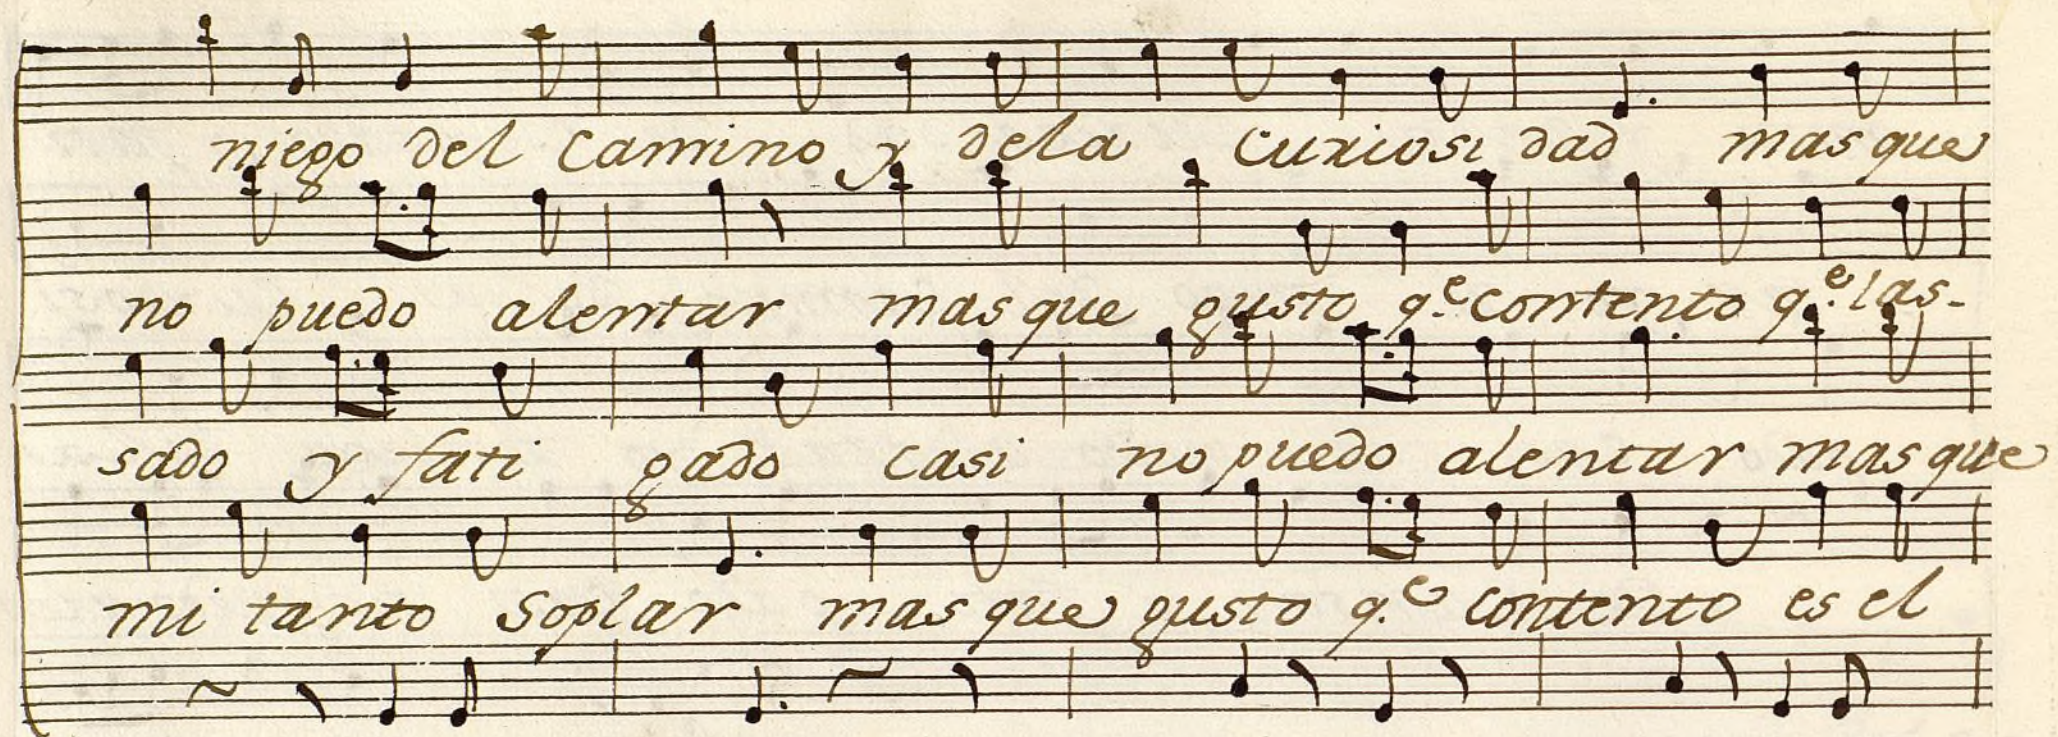 niego del Camino y dela curiosi dad mas que
no puedo alentar mas que gusto q.e contento q.e las-
sado y fati gado casi no puedo alentar mas que
mi tanto soplar mas que gusto q.e contento es el